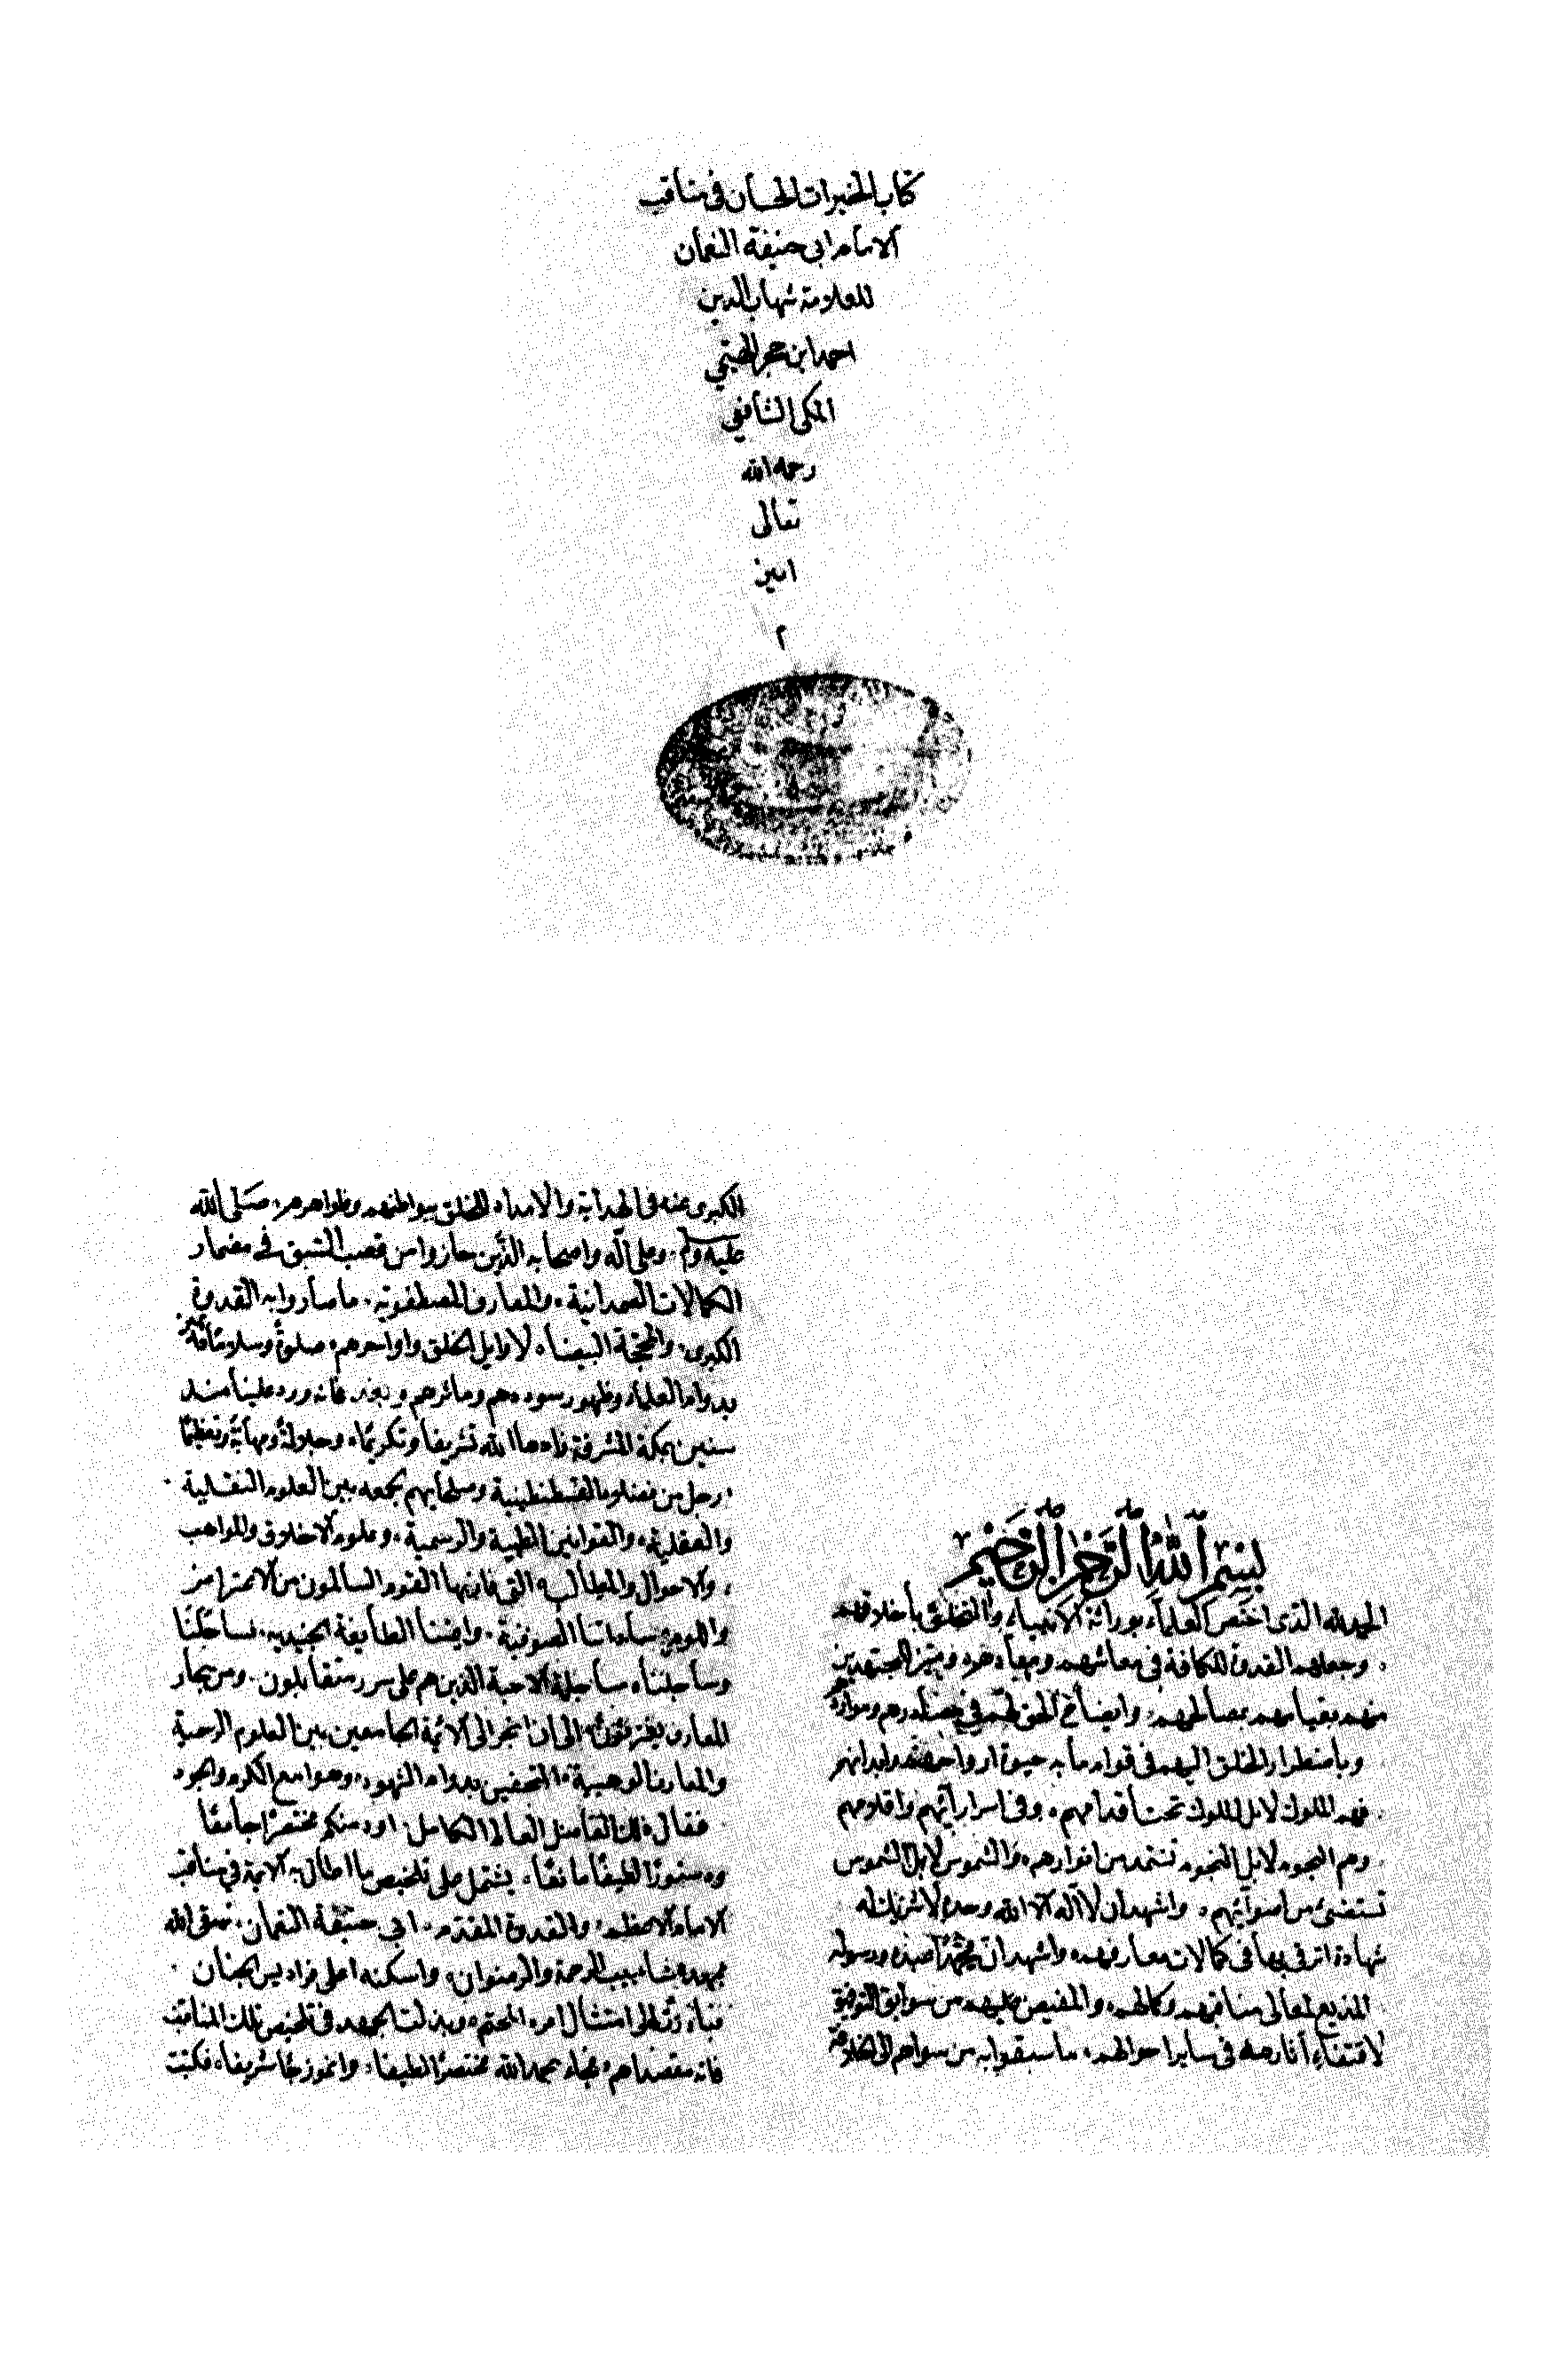 كتاب الخيرات الحسان في مناقب
الامام ابي حنيفة النعمان
للعلامة شهاب الدين
احمد ابن حجر الهيتمي
المكي الشافعي
رحمه الله
تعالى
امين
م
بسم الله الرحمن الرحيم
الحمد لله الذي اختص العلماء بوراثة الانبياء والتخلق باخلاقهم
وجعلهم القدوة للكافة في معاشهم ومعادهم وميز المجتهدين
منهم بقيامهم بمصالحهم وايضاح الحق لهم في
وباضطرار الخلق اليهم في قوام ما به حيوة ارواحهم وابدانهم
فهم الملوك لا بل الملوك تحت اقدامهم وفي اسرارائهم واقلامهم
وهم النجوم لا بل النجوم تستمد من انوارهم والشموس لا بل الشموس
تستضئ من اضوائهم واشهد ان لا اله الا الله وحده لا شريك له
شهادة اترقى بها في كمالات معارفهم واشهد ان محمدا عبده ورسوله
لمعالى مناقبهم وكمالهم والمفيض عليهم من سوابق التوفيق
لاقتفاء آثارهم في ساير احوالهم ما سبقوا به من سواهم الى الخلافة
الكبرى عنه في الهداية والامداد للخلق ببواطنهم وظواهرهم صلى الله
عليه وسلم وعلى آله واصحابه الذين حازوا من قصب السبق في مضمار
الكمالات الصمدانية والمعارف المصطفوية ما صاروا به القدوة
الكبرى والمحجة البيضاء لاوايل الخلق واواخرهم صلوة وسلاما دائمين
بدوام العلماء وظهور سوددهم ومآثرهم وبعد فانه ورد علينا منذ
سنين بمكة المشرفة زادها الله تشريفا وتكريما وجلالة ومهابة وتعظيما
رجل من فضلاء القسطنطينية وصلحايهم بجمعه بين العلوم النقلية
والعقلية والقوانين الطبية والرسمية وعلوم الاخلاق والمواهب
والاحوال والمطالب التي فاز بها القوم السالمون من الاعتراض
واللوم ساداتنا الصوفية وايضا الطايفة الجنيدية فساجلنا
وساجلناه مساجلة الاحبة الذين هم على سرر متقابلون ومن بحار
المعارف يغترفون الى ان انجر الى الائمة الجامعين بين العلوم الرسمية
والمعارف الوهبية المتحفين بدوام الشهود وهوامع الكرم والجود
فقال ذلك الفاضل العالم الكامل اود منكم مختصرا جامعا
ودستورا لطيفا مانعا يشتمل على تلخيص ما اطال به الائمة في مناقب
الامام الاعظم والقدوة المقدم ابي حنيفة النعمان سقى الله
عهده شابيب الرحمة والرضوان واسكنه اعلى فراديس الجنان
فبادرت الى امتثال امره المحتم وبذلت الجهد في تلخيص تلك المناقب
فانه مقصد اهم فجاء بحمد الله مختصرا لطيفا وانموذجا شريفا فكتبت